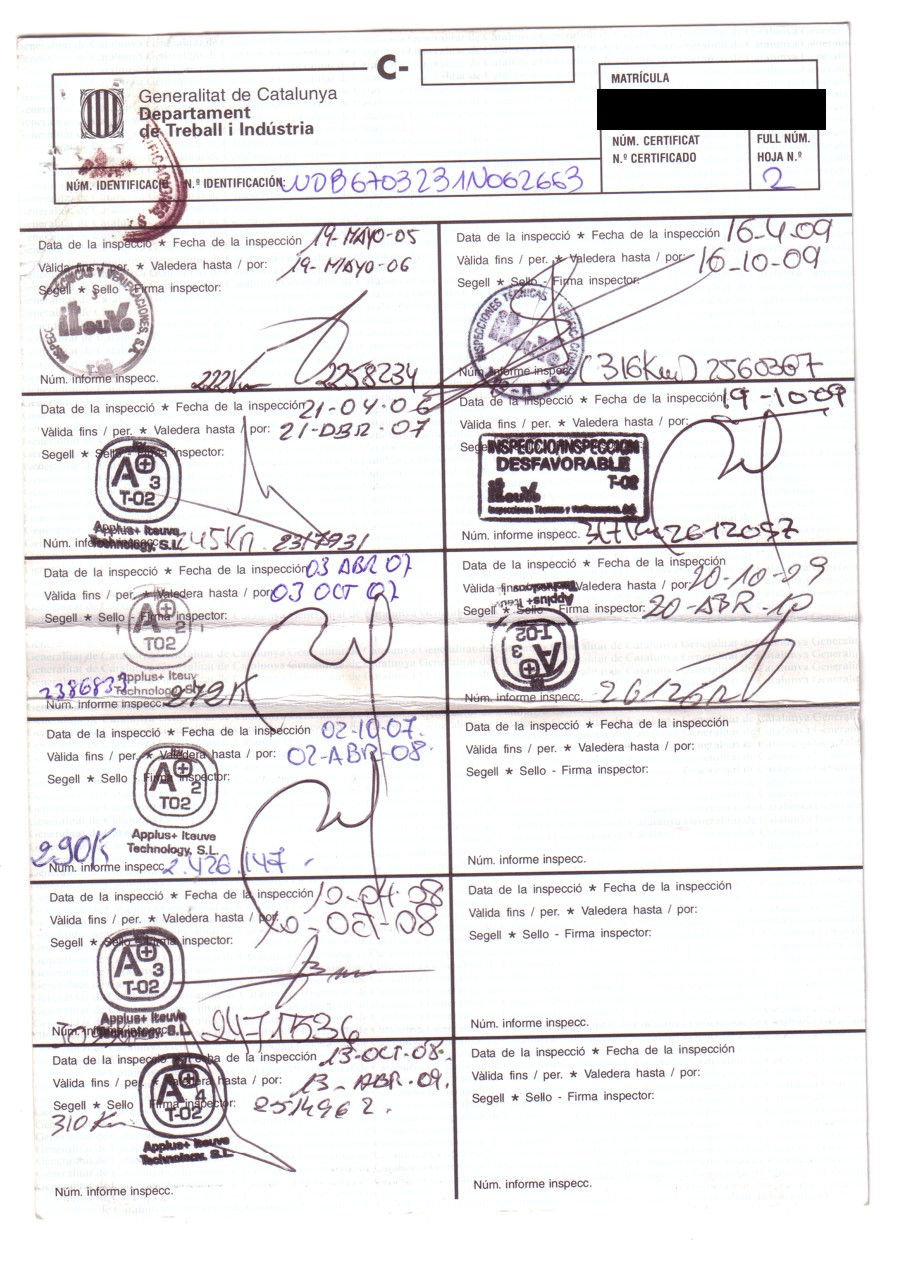 C-
Generalitat de Catalunya
Departament
de Treball i Indústria
MATRÍCULA
NÚM. CERTIFICAT
N.º CERTIFICADO
FULL NÚM.
HOJA N.º
2
NÚM. IDENTIFICACIÓ N.º IDENTIFICACIÓN: WDB6703231N062663
Data de la inspecció * Fecha de la inspección 19-MAYO-05
Vàlida fins / per. * Valedera hasta / por: 19-MAYO-06
Segell * Sello - Firma inspector:
iteuve
T-02
Núm. informe inspecc. 222Km 2258234
Data de la inspecció * Fecha de la inspección 21-04-06
Vàlida fins / per. * Valedera hasta / por: 21-ABR-07
Segell * Sello - Firma inspector:
A+ 3
T-02
Applus+ Iteuve
Technology, S.L.
Núm. informe inspecc. 245Km 2317931
Data de la inspecció * Fecha de la inspección 03 ABR 07
Vàlida fins / per. * Valedera hasta / por: 03 OCT 07
Segell * Sello - Firma inspector:
A+ 2
T02
Applus+ Iteuve
Technology, S.L.
Núm. informe inspecc.
Data de la inspecció * Fecha de la inspección 02-10-07.
Vàlida fins / per. * Valedera hasta / por: 02-ABR-08.
Segell * Sello - Firma inspector:
A+ 2
T02
Applus+ Iteuve
Technology, S.L.
290K
Núm. informe inspecc. 2.426.147
Data de la inspecció * Fecha de la inspección 10-04-08
Vàlida fins / per. * Valedera hasta / por: 10-OCT-08
Segell * Sello - Firma inspector:
A+ 3
T-02
Applus+ Iteuve
Technology, S.L.
Núm. informe inspecc. 2471536
Data de la inspecció * Fecha de la inspección 13-OCT-08.
Vàlida fins / per. * Valedera hasta / por: 13-ABR-09.
Segell * Sello - Firma inspector: 2514962.
310 Km
A+ 4
T-02
Applus+ Iteuve
Technology, S.L.
Núm. informe inspecc.
Data de la inspecció * Fecha de la inspección 16-4-09
Vàlida fins / per. * Valedera hasta / por: 16-10-09
Segell * Sello - Firma inspector:
INSPECCIONES TÉCNICAS
Núm. informe inspecc. (316Km) 2560367
Data de la inspecció * Fecha de la inspección 19-10-09
Vàlida fins / per. * Valedera hasta / por:
INSPECCIO/INSPECCION
DESFAVORABLE
T-02
iteuve
Núm. informe inspecc. 2612097
Data de la inspecció * Fecha de la inspección
Vàlida fins / per. * Valedera hasta / por: 20-10-09
Segell * Sello - Firma inspector: 20-ABR-10
Applus+ Iteuve
Technology, S.L.
A+ 3
T-02
Núm. informe inspecc.
Data de la inspecció * Fecha de la inspección
Vàlida fins / per. * Valedera hasta / por:
Segell * Sello - Firma inspector:
Núm. informe inspecc.
Data de la inspecció * Fecha de la inspección
Vàlida fins / per. * Valedera hasta / por:
Segell * Sello - Firma inspector:
Núm. informe inspecc.
Data de la inspecció * Fecha de la inspección
Vàlida fins / per. * Valedera hasta / por:
Segell * Sello - Firma inspector:
Núm. informe inspecc.